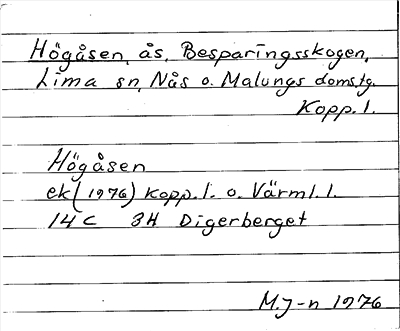 Högåsen, ås, Besparingsskogen,
Lima sn, Nås o. Malungs doms.tg.
Kopp. l.
Högåsen
ek (1976) Kopp. l. o. Värml. l.
14 C 3H Digerberget
M.J-n 1976